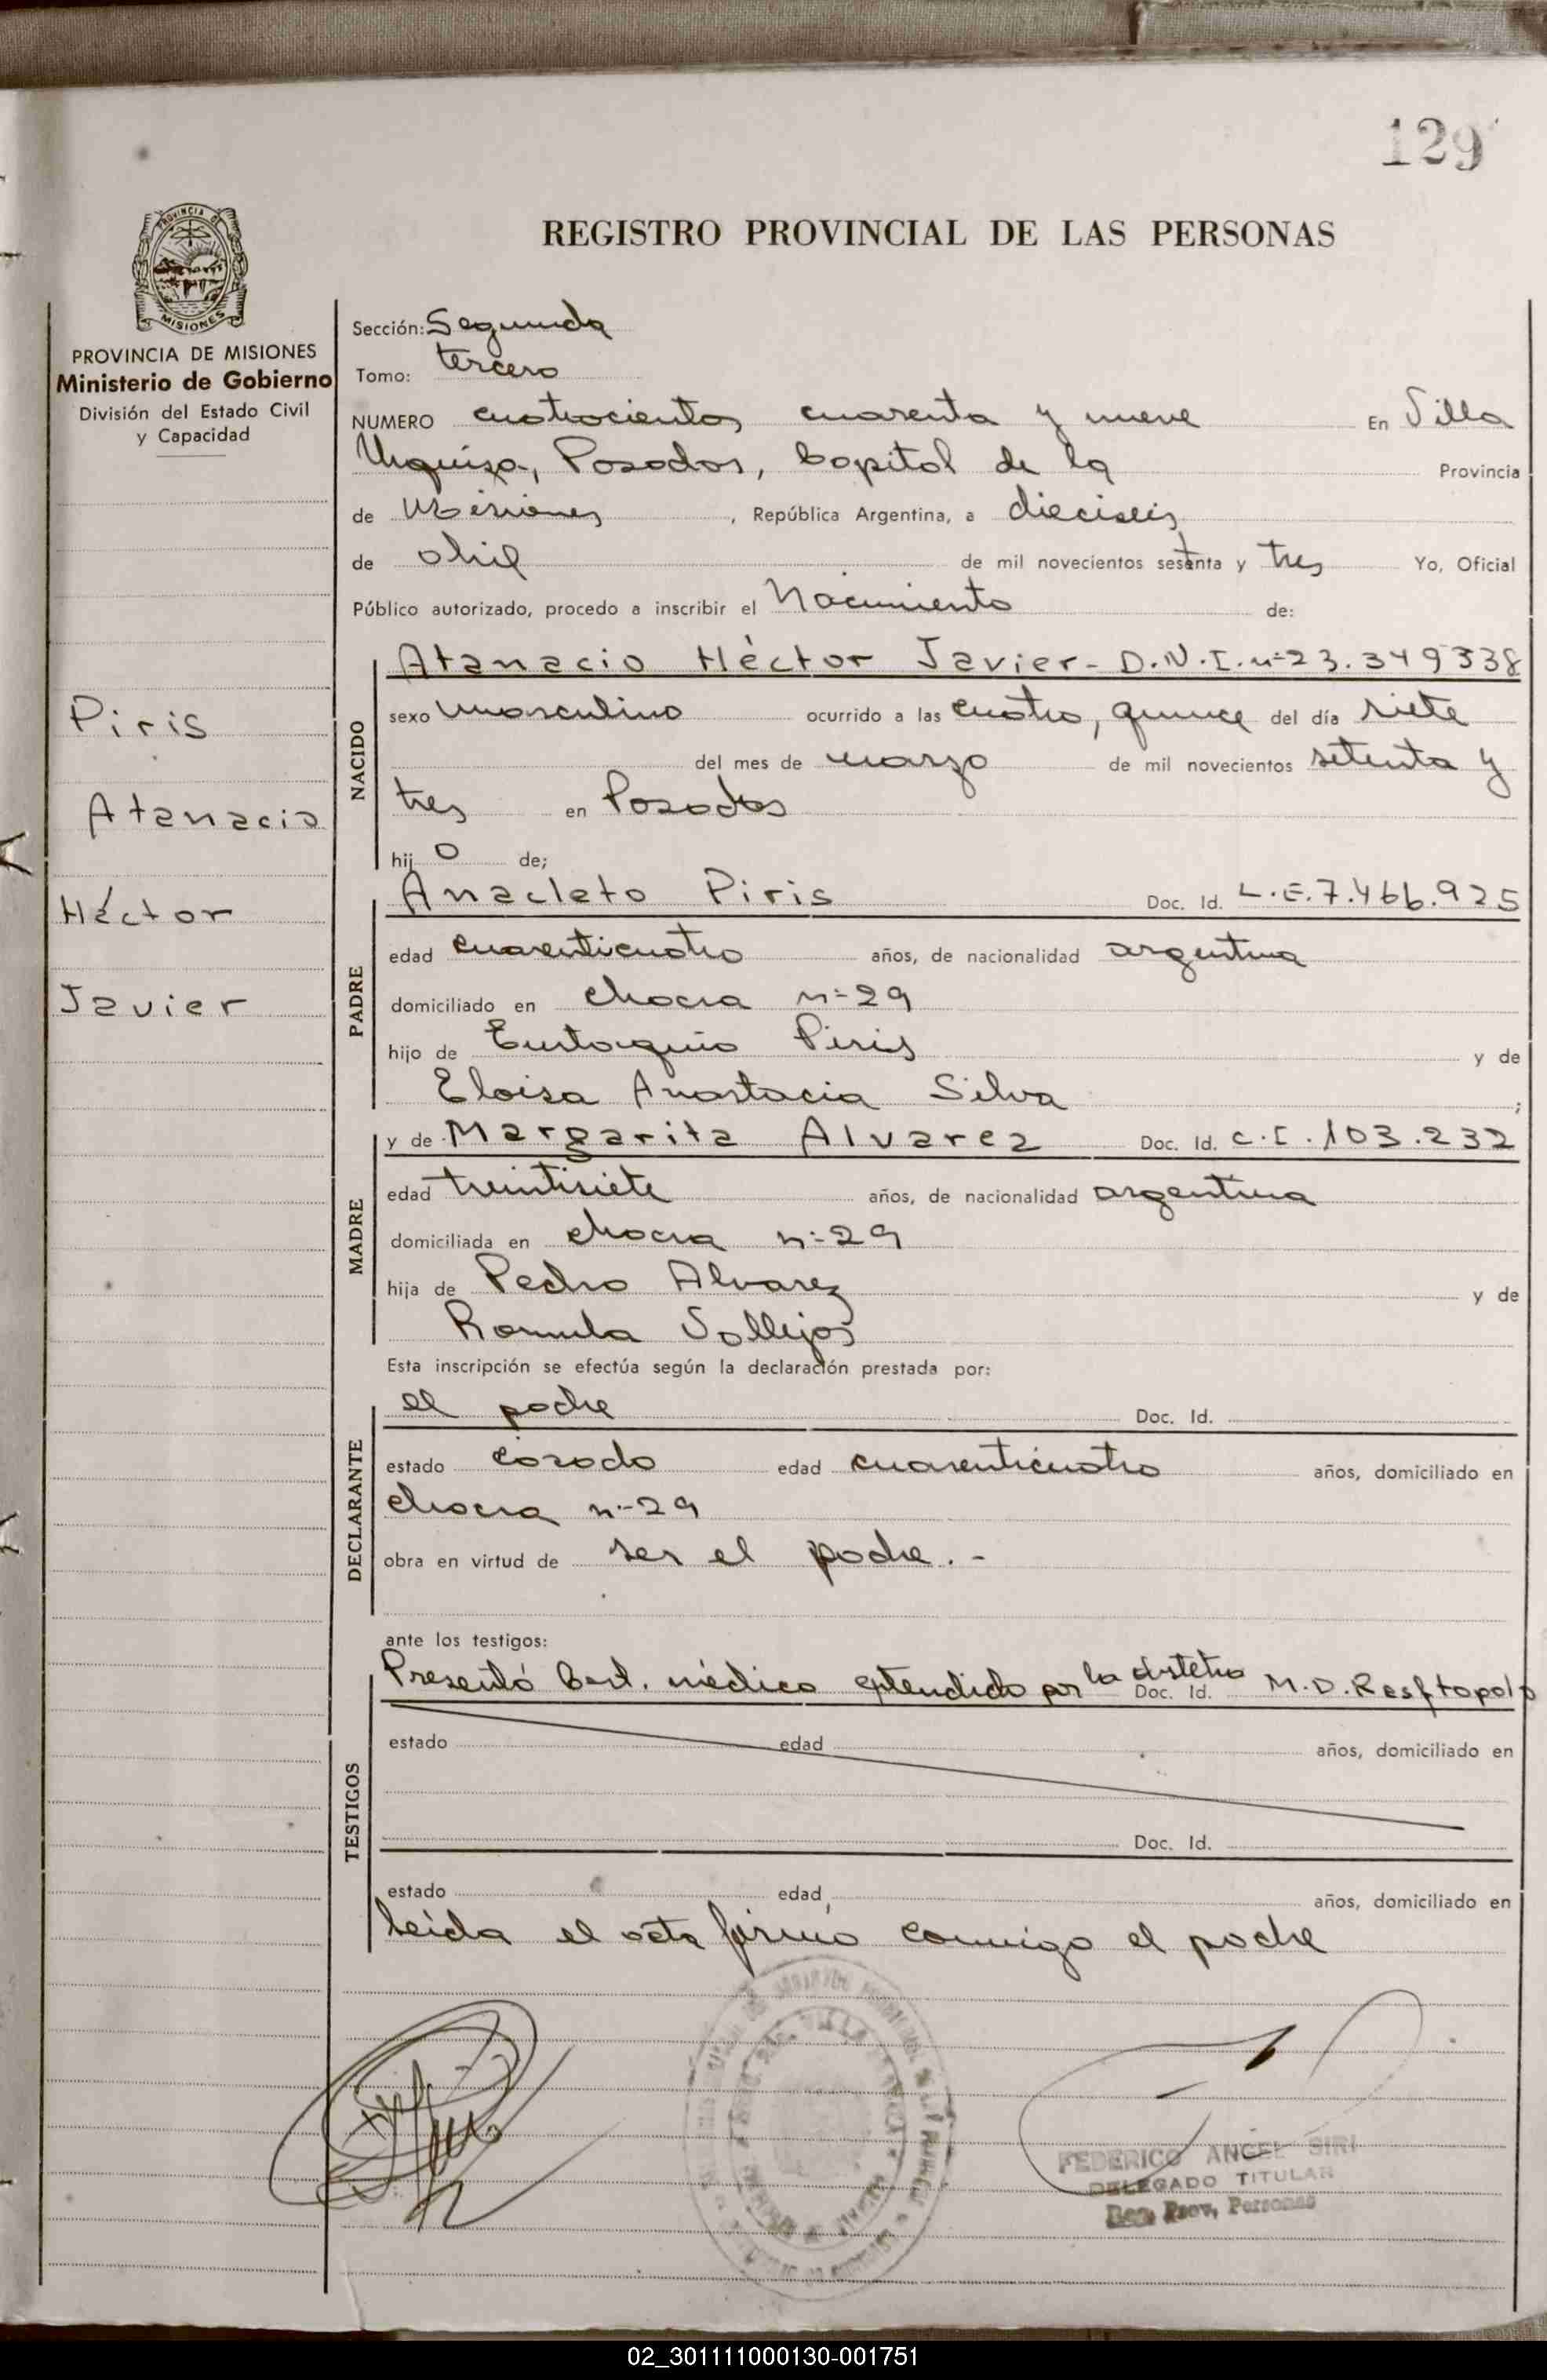 129
REGISTRO PROVINCIAL DE LAS PERSONAS
PROVINCIA DE MISIONES
PROVINCIA DE MISIONES
Ministerio de Gobierno
División del Estado Civil
y Capacidad
Piris
Atanacio
Héctor
Javier
Sección: Segunda
Tomo: tercero
NUMERO cuatrocientos cuarenta y nueve En Villa
Urquiza, Posadas, Capital de la Provincia
de Misiones, República Argentina, a dieciseis
de abril de mil novecientos setenta y tres Yo, Oficial
Público autorizado, procedo a inscribir el Nacimiento de:
NACIDO
Atanacio Héctor Javier- D.N.I. nº 23.349338
sexo masculino ocurrido a las cuatro, quince del día siete
del mes de marzo de mil novecientos setenta y
tres en Posadas
hijo de;
PADRE
Anacleto Piris Doc. Id. L.E. 7.466.925
edad cuarenticuatro años, de nacionalidad argentina
domiciliado en chacra nº 29
hijo de Eustaquio Piris y de
Eloisa Anastacia Silva ;
MADRE
y de Margarita Alvarez Doc. Id. C.I. 103.232
edad treintisiete años, de nacionalidad argentina
domiciliada en chacra nº 29
hija de Pedro Alvarez y de
Romula Vallejos
Esta inscripción se efectúa según la declaración prestada por:
DECLARANTE
el padre Doc. Id.
estado casado edad cuarenticuatro años, domiciliado en
chacra nº 29
obra en virtud de ser el padre.-
ante los testigos:
TESTIGOS
Presentó Cert. médico extendido por la obstetra Doc. Id. M.D.
estado edad años, domiciliado en
Doc. Id.
estado edad años, domiciliado en
leida el acta firmó conmigo el padre
FEDERICO ANGEL SIRI
DELEGADO TITULAR
Reg. Prov. Personas
02_301111000130-001751